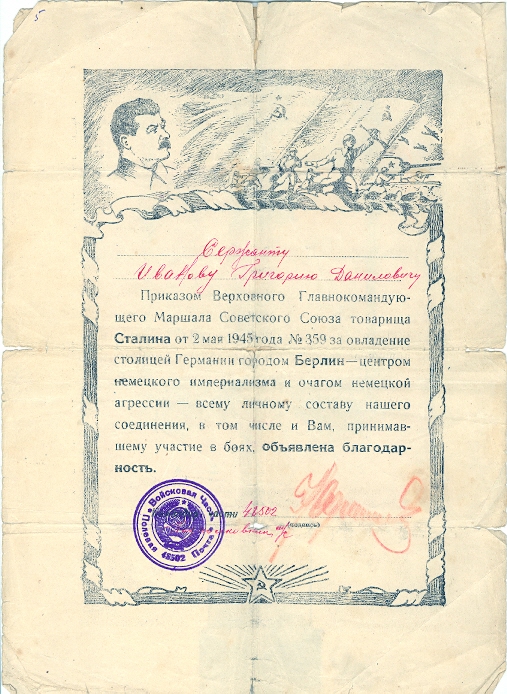 5
Сержанту
Ивакову Григорию Даниловичу
Приказом Верховного Главнокомандую-
щего Маршала Советского Союза товарища
Сталина от 2 мая 1945 года № 359 за овладение
столицей Германии городом Берлин—центром
немецкого империализма и очагом немецкой
агрессии — всему личному составу нашего
соединения, в том числе и Вам, принимав-
шему участие в боях, объявлена благодар-
ность.
части 48502
(подпись)
Войсковая Часть
Полевая Почта
48502